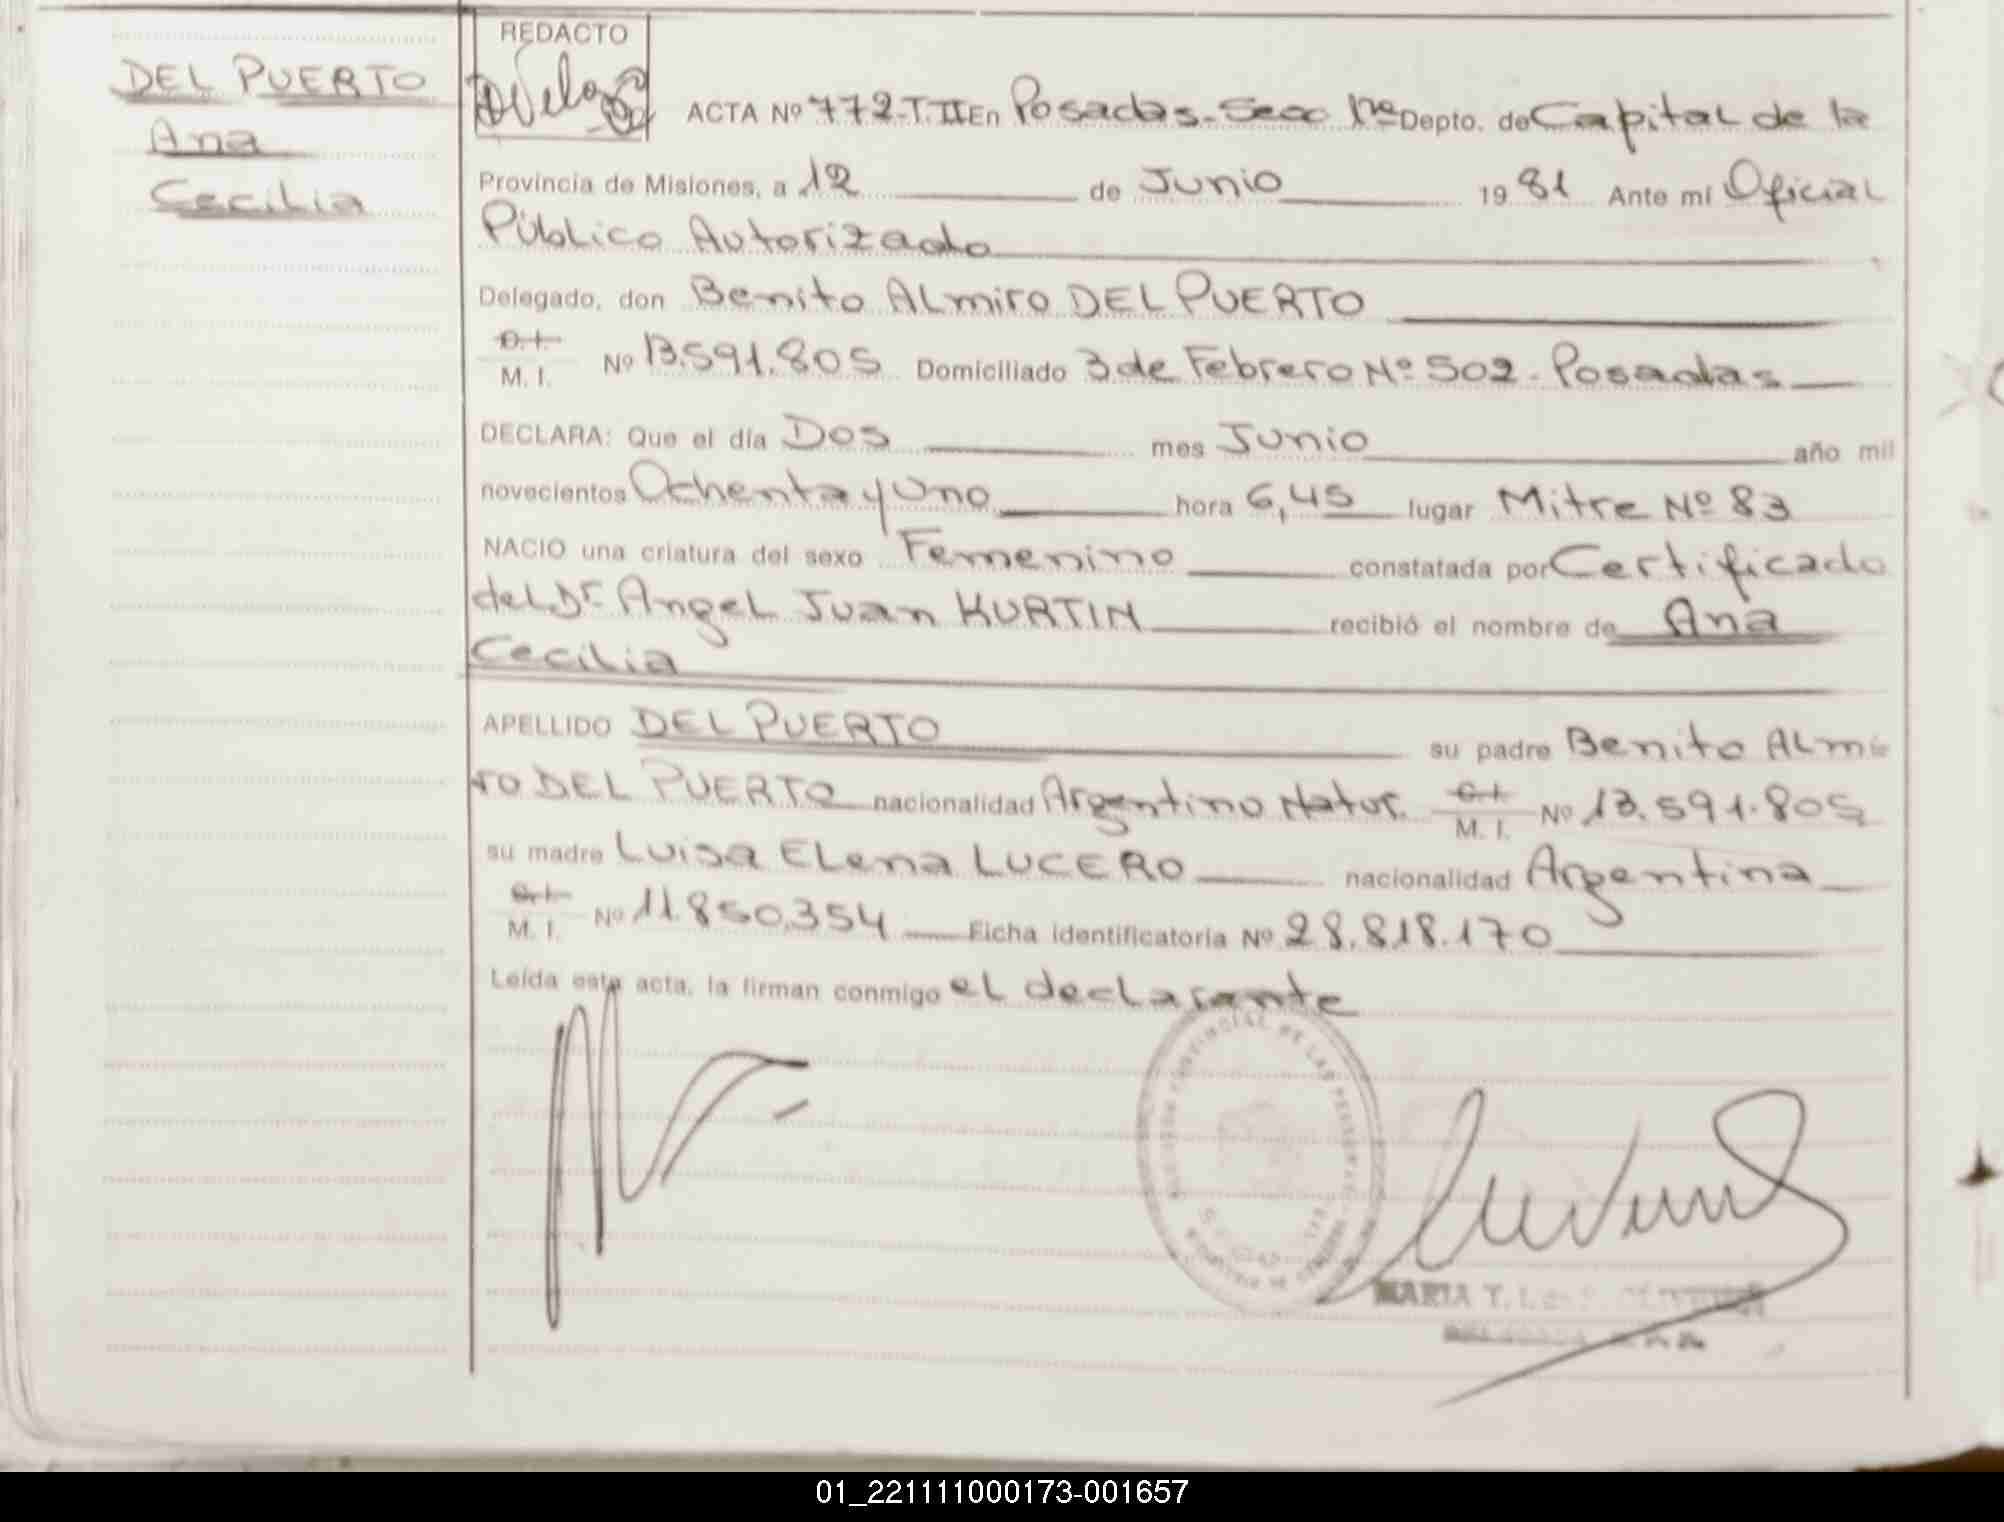 DEL PUERTO
Ana
Cecilia
REDACTO
ACTA Nº 772-T.II En Posadas-Secc 1ra Depto. de Capital de la
Provincia de Misiones, a 12 de Junio 1981 Ante mí Oficial
Público Autorizado
Delegado, don Benito ALmiro DEL PUERTO
C.I.
M. I. Nº 13.591.805 Domiciliado 3 de Febrero Nº 502 - Posadas
DECLARA: Que el día Dos mes Junio año mil
novecientos Ochenta y Uno hora 6,45 lugar Mitre Nº 83
NACIO una criatura del sexo Femenino constatada por Certificado
del Dr. Angel Juan KURTIN recibió el nombre de Ana
Cecilia
APELLIDO DEL PUERTO su padre Benito ALmi
ro DEL PUERTO nacionalidad Argentino Natur. C.I.
M. I. Nº 13.591.805
su madre Luisa ELena LUCERO nacionalidad Argentina
C.I.
M. I. Nº 11.850.354 Ficha identificatoria Nº 28.818.170
Leída esta acta, la firman conmigo el declarante
MARIA T.
01_221111000173-001657